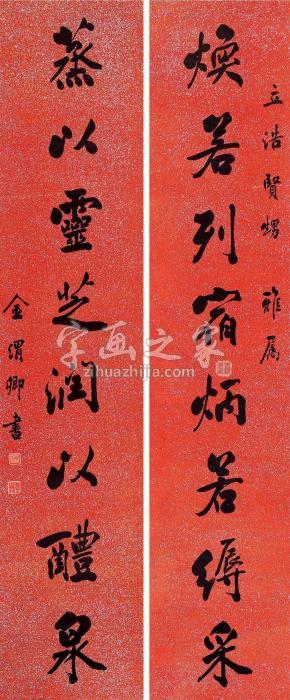 立浩賢甥 雅屬
煥若列宿炳若縟采
蒸以靈芝润以醴泉
金渭卿書
字画之家
zihuazhijia.com